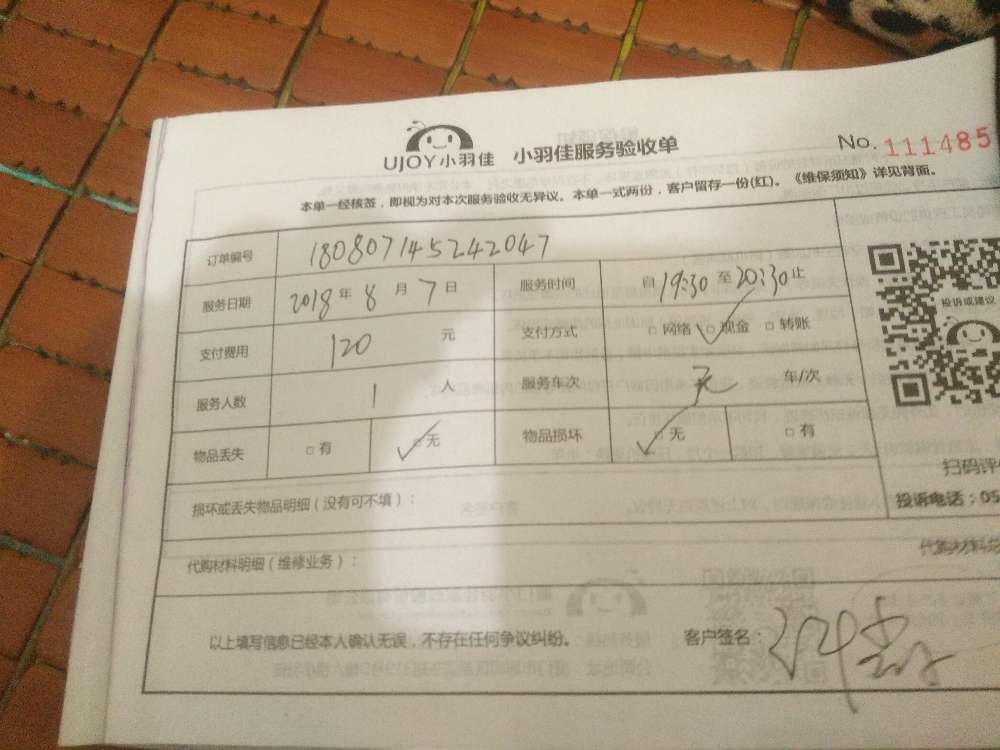 UJOY小羽佳 小羽佳服务验收单 No. 111485
本单一经核签，即视为对本次服务验收无异议。本单一式两份，客户留存一份(红)。《维保须知》详见背面。
订单编号 180807145242047
服务日期 2018年8月7日 服务时间 自19:30至20:30止
投诉或建议
支付费用 120元 支付方式 □网络 □现金 □转账
服务人数 1人 服务车次 无 车/次
物品丢失 □有 □无 物品损坏 □无 □有
扫码评
投诉电话：05
损坏或丢失物品明细（没有可不填）：
代购材料明细（维修业务）：
以上填写信息已经本人确认无误，不存在任何争议纠纷。 客户签名：